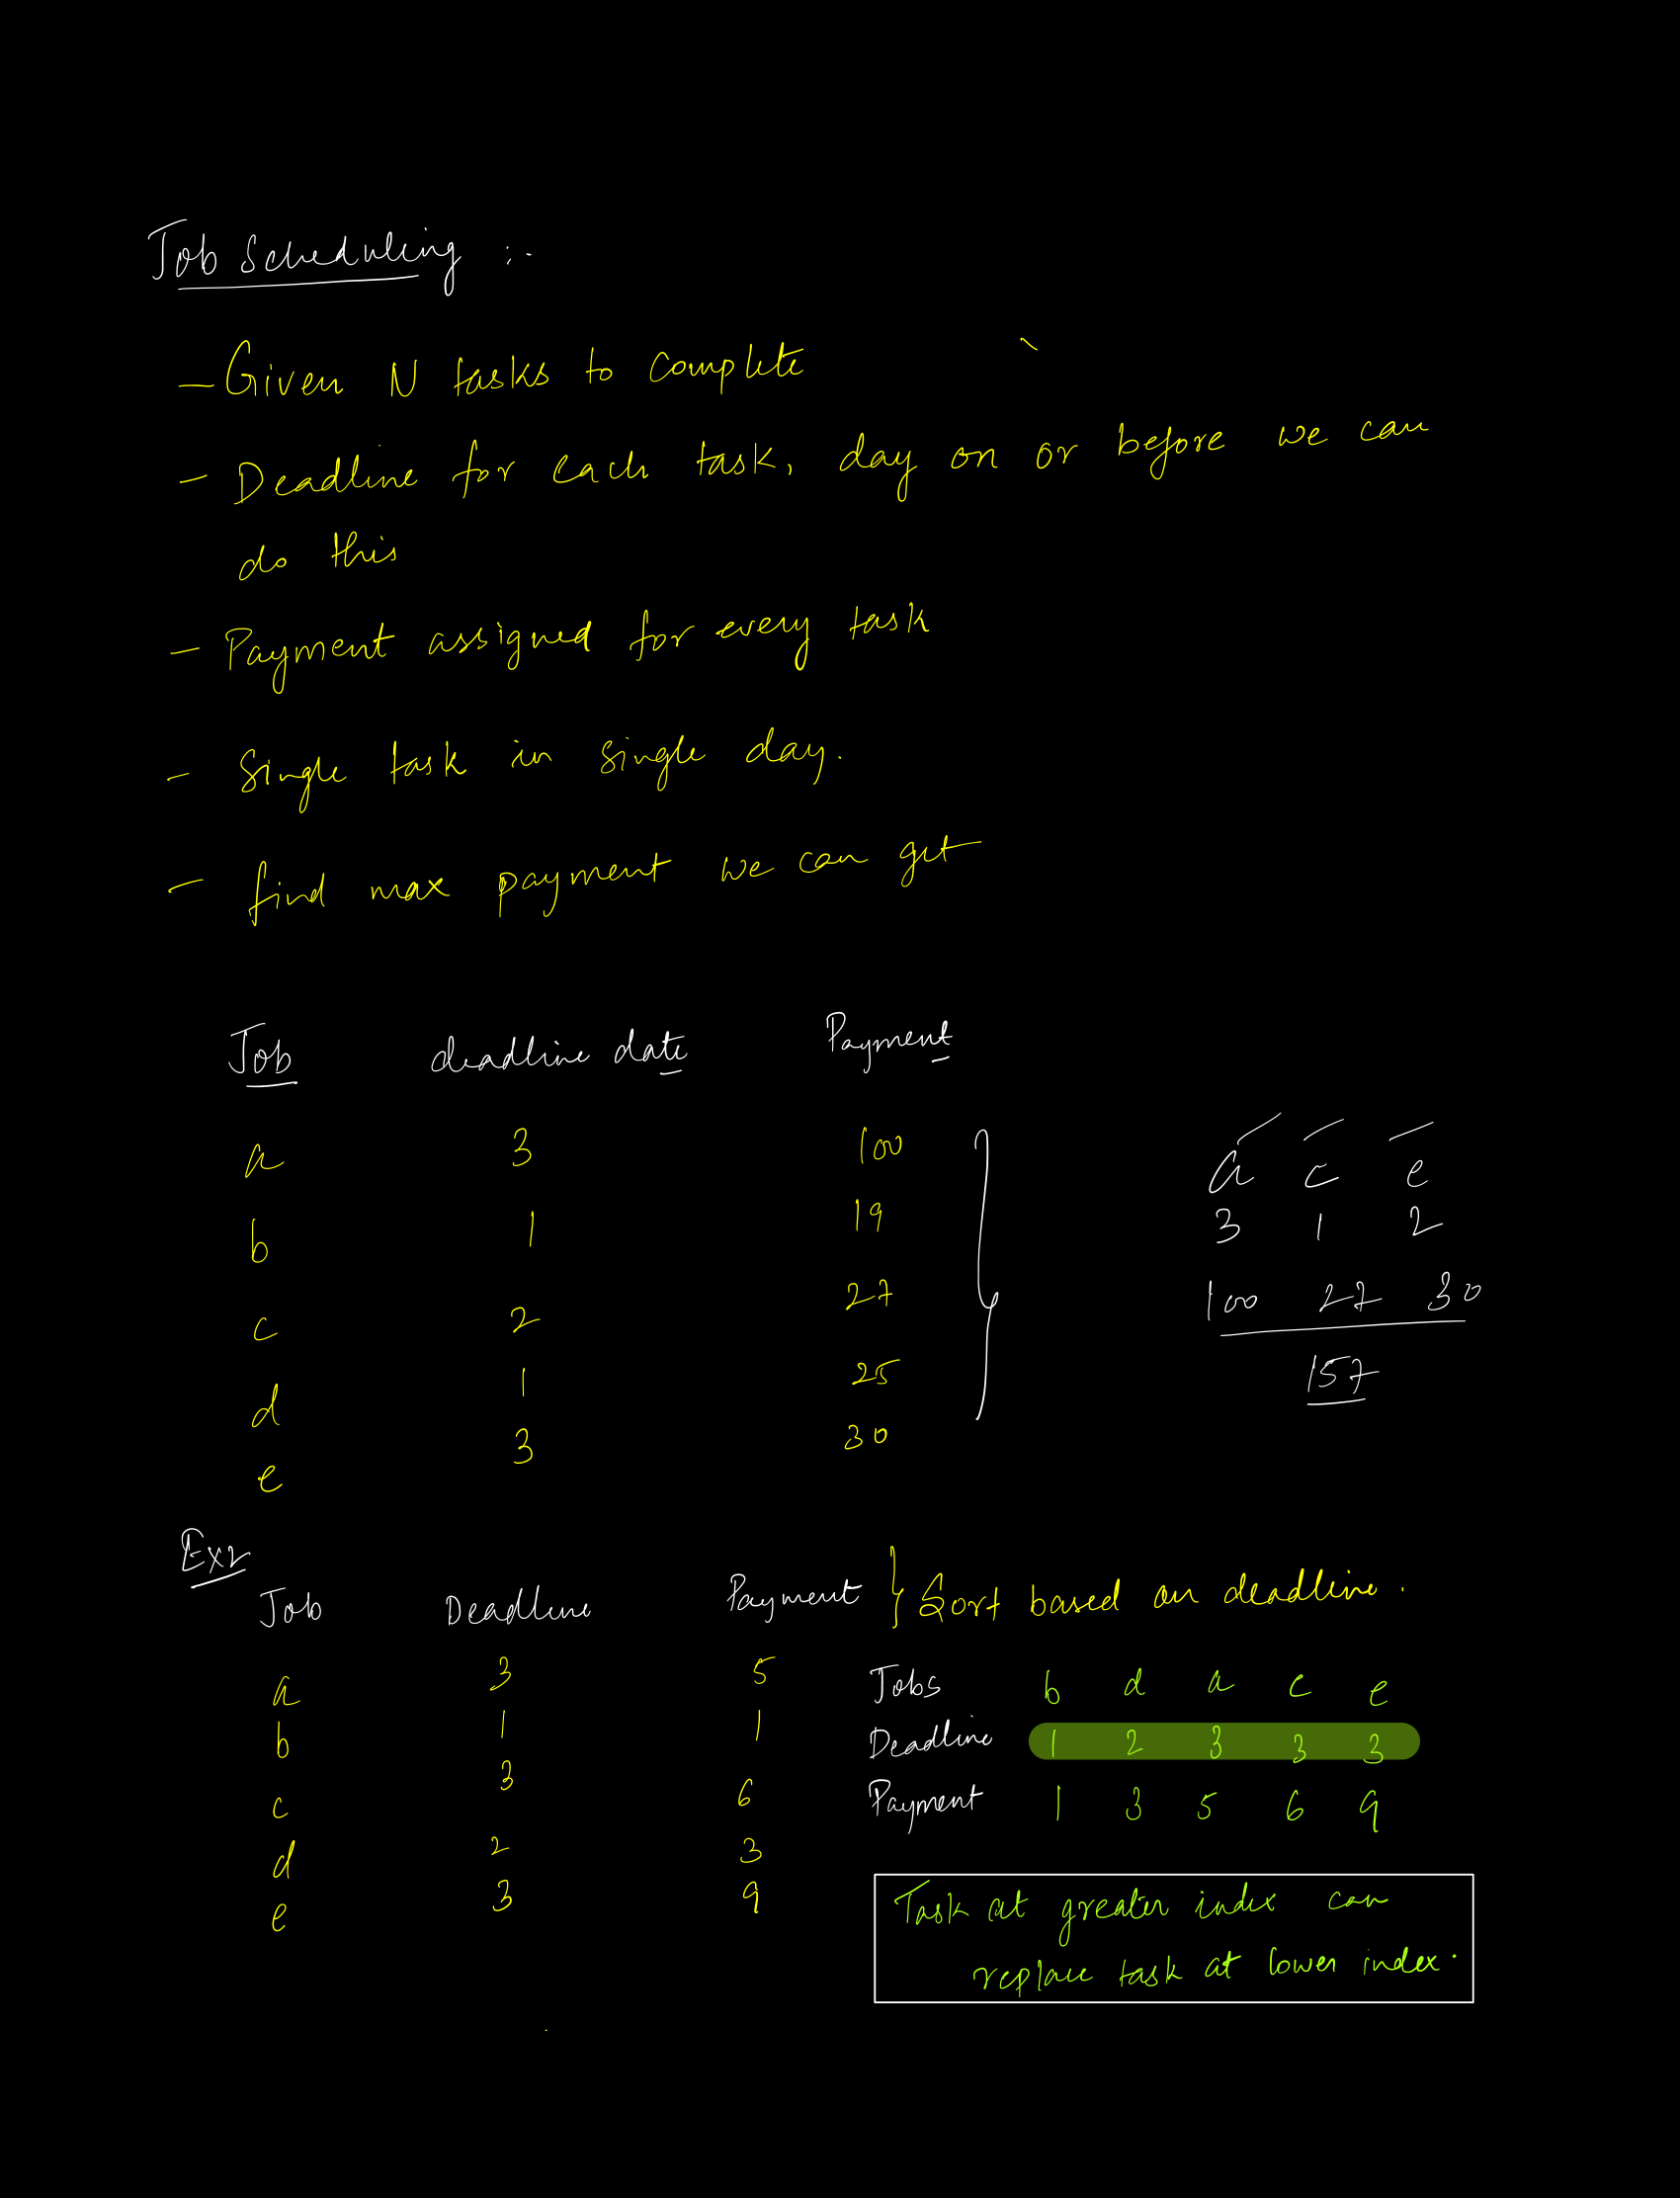 Job Scheduling :-
- Given N tasks to complete
- Deadline for each task, day on or before we can
do this
- Payment assigned for every task
- Single task in single day.
- find max payment we can get
Job deadline date Payment
a 3 100
b 1 19
c 2 27
d 1 25
e 3 30
a c e
3 1 2
100 27 30
157
Ex2
Job Deadline Payment } Sort based on deadline.
a 3 5
b 1 1
c 3 6
d 2 3
e 3 9
Jobs b d a c e
Deadline 1 2 3 3 3
Payment 1 3 5 6 9
Task at greater index can
replace task at lower index.